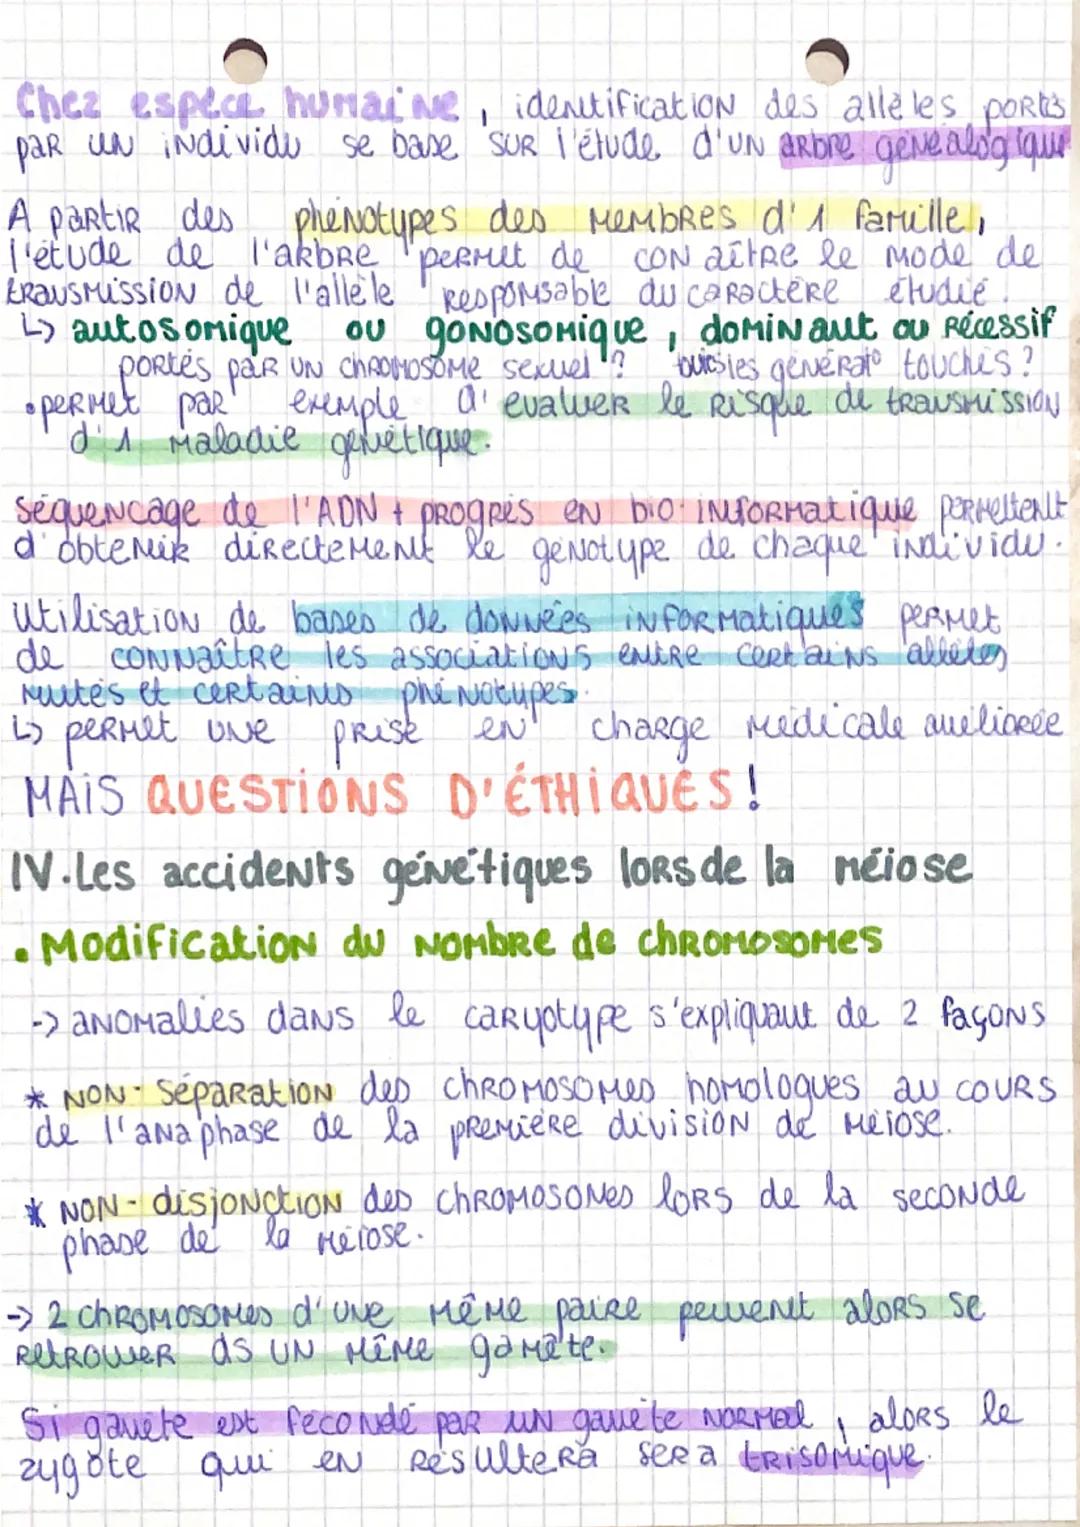 Chez espèce humaine, identification des allèles portés
par un individu se base sur l'étude d'un arbre généalogique
A partir des phénotypes des membres d'1 famille,
l'étude de l'arbre permet de connaître le mode de
transmission de l'allèle responsable du caractère étudié.
↳ autosomique ou gonosomique, dominant ou récessif
portés par un chromosome sexuel ? générat° touchés ?
• permet par exemple d'évaluer le risque de transmission
d'1 maladie génétique.
séquencage de l'ADN + progrès en bio-informatique permettent
d'obtenir directement le génotype de chaque individu.
Utilisation de bases de données informatiques permet
de connaître les associations entre certains allèles
mutés et certains phénotypes.
↳ permet une prise en charge médicale améliorée
MAIS QUESTIONS D'ÉTHIQUES !
IV. Les accidents génétiques lors de la méiose
• Modification du nombre de chromosomes
-> anomalies dans le caryotype s'expliquant de 2 façons
* non-séparation des chromosomes homologues au cours
de l'anaphase de la première division de méiose.
* non-disjonction des chromosomes lors de la seconde
phase de la méiose.
-> 2 chromosomes d'une même paire peuvent alors se
retrouver ds un même gamète.
Si gamète est fécondé par un gamète normal, alors le
zygôte qui en résultera sera trisomique.